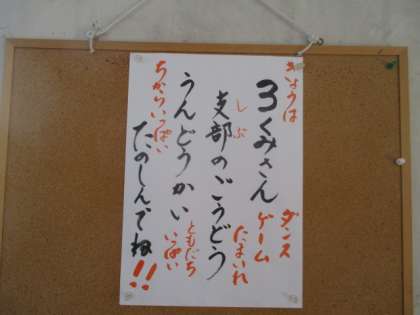 きょうは
3くみさん
ダンス
ゲーム
たまいれ
しぶ
支部のごうどう
うんどうかい
ともだち
いっぱい
ちからいっぱい
たのしんでね!!